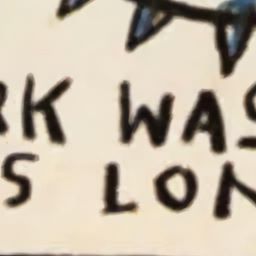 RK WAS
S LON